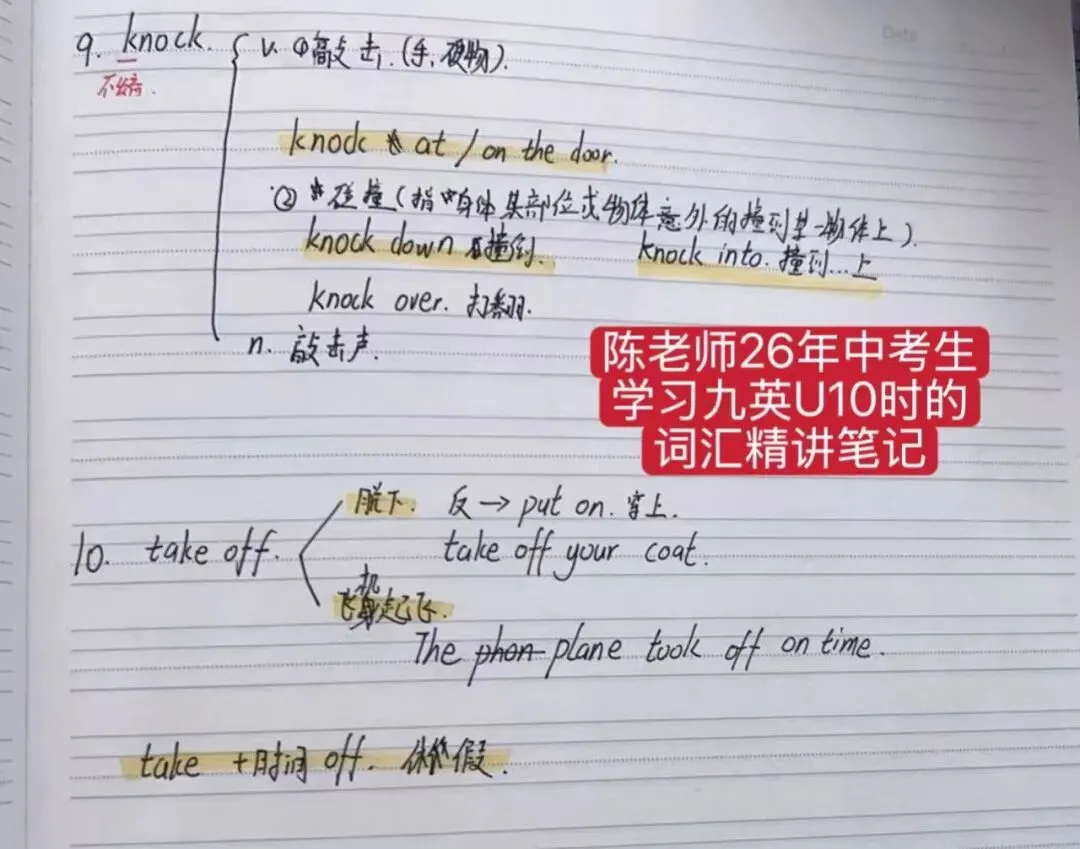 Date
9. knock. { v. ①敲击.(手,硬物).
不发音.
knock at / on the door.
②碰撞(指身体某部位或物体意外的撞到某一物体上).
knock down 撞倒. knock into. 撞到...上
knock over. 打翻.
n. 敲击声.
陈老师26年中考生
学习九英U10时的
词汇精讲笔记
脱下. 反→put on. 穿上.
10. take off.
take off your coat.
飞机起飞.
The plane took off on time.
take +时间 off. 休假.